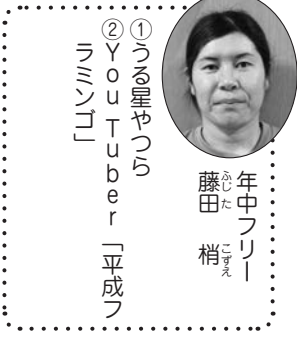 年中フリー
藤田 梢
ふじた こずえ
①うる星やつら
②You Tuber「平成フ
ラミンゴ」